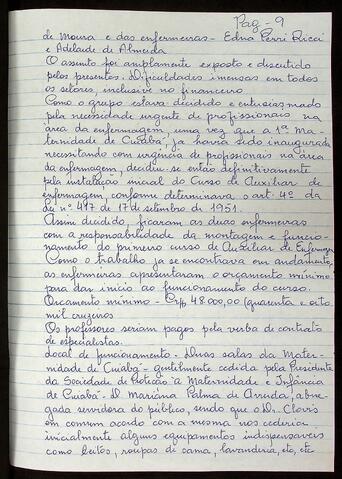 Pag - 9
de Moura e das enfermeiras - Edna Perri Ricci
e Adelaide de Almeida
O assunto foi amplamente exposto e discutido
pelos presentes. Dificuldades imensas em todos
os setores, inclusive no financeiro
Como o grupo estava decidido e entusiasmado
pela necessidade urgente de profissionais na
área da enfermagem, uma vez que a 1ª Ma-
ternidade de Cuiabá, já havia sido inaugurada
necessitando com urgência de profissionais na área
da enfermagem, decidiu-se então definitivamente
pela instalação inicial do Curso de Auxiliar de
enfermagem, conforme determinava o art. 4º da
Lei nº 417 de 17 de setembro de 1951.
Assim decidido, ficaram as duas enfermeiras
com a responsabilidade da montagem e funcio-
namento do primeiro curso de Auxiliar de Enfermagem
Como o trabalho ja se encontrava em andamento,
as enfermeiras apresentaram o orçamento mínimo
para dar início ao funcionamento do curso.
Orçamento mínimo - Cr$ 48.000,00 (quarenta e oito
mil cruzeiros
Os professores seriam pagos pela verba de contrato
de especialistas.
Local de funcionamento - Duas salas da Mater-
nidade de Cuiabá - gentilmente cedida pela Presidente
da Sociedade de Proteção à Maternidade e Infância
de Cuiabá - D. Mariana Palma de Arruda, abne-
gada servidora do público, sendo que o Dr. Clovis
em comum acordo com a mesma nos cederia
inicialmente alguns equipamentos indispensaveis
como leitos, roupas de cama, lavanderia, etc, etc